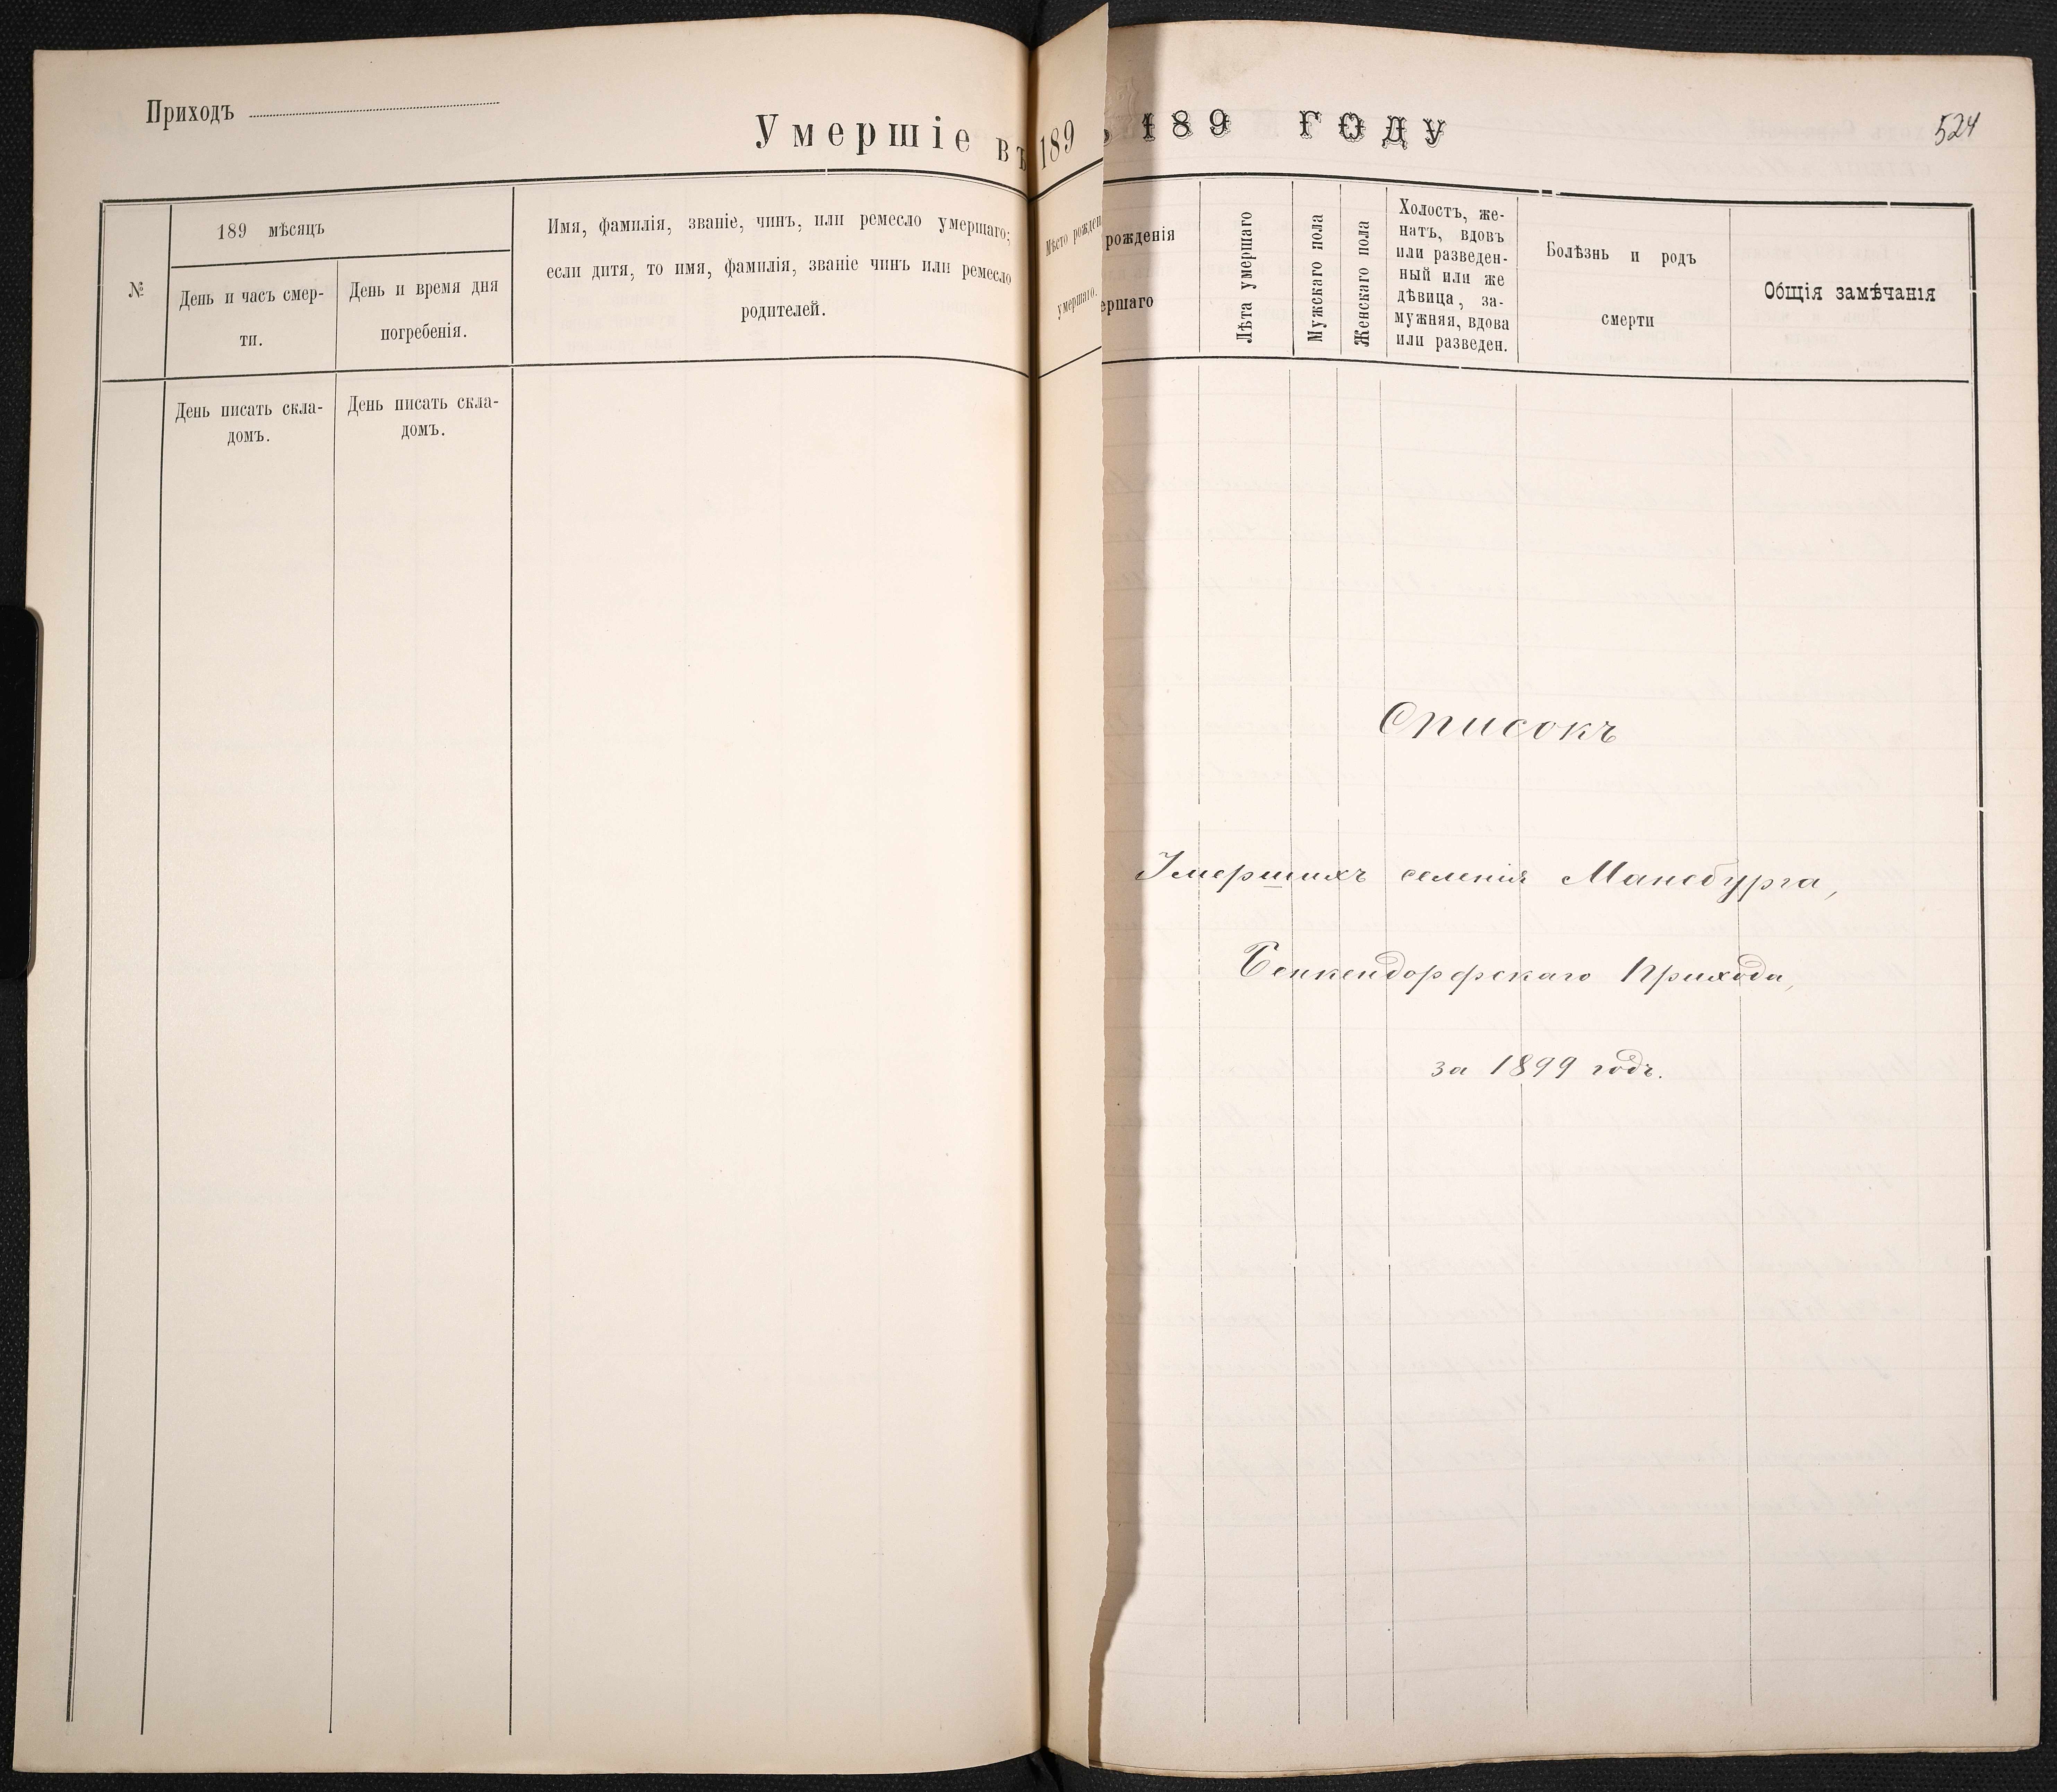 Приходъ
Умершіе въ
№
189 мѣсяцъ
День и часъ смер-
ти.
День и время дня
погребенія.
Имя, фамилія, званіе, чинъ, или ремесло умершаго;
если дитя, то имя, фамилія, званіе чинъ или ремесло
родителей.
День писать скла-
домъ.
День писать скла-
домъ.
189
Мѣсто рожден
умершаго.
189 ГОДУ
524
рожденія
ершаго
Лѣта умершаго
Мужскаго пола
Женскаго пола
Холостъ, же-
натъ, вдовъ
или разведен-
ный или же
дѣвица, за-
мужняя, вдова
или разведен.
Болѣзнь и родъ
смерти
Общія замѣчанія
Списокъ
Умершихъ селенія Мансбурга,
Бенкендорфскаго Прихода,
за 1899 годъ.